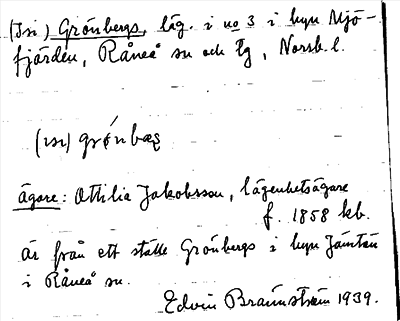 (Isi) Grönbergs, läg. i no 3 i byn Mjö-
fjärden, Råneå sn och tg, Norrb. l.
(ısı) grǿnbæş
ägare: Ottilia Jakobsson, lägenhetsägare
f. 1858 kb.
Är från ett ställe Grönbergs i byn Jämtön
i Råneå sn.
Edvin Brännström 1939.